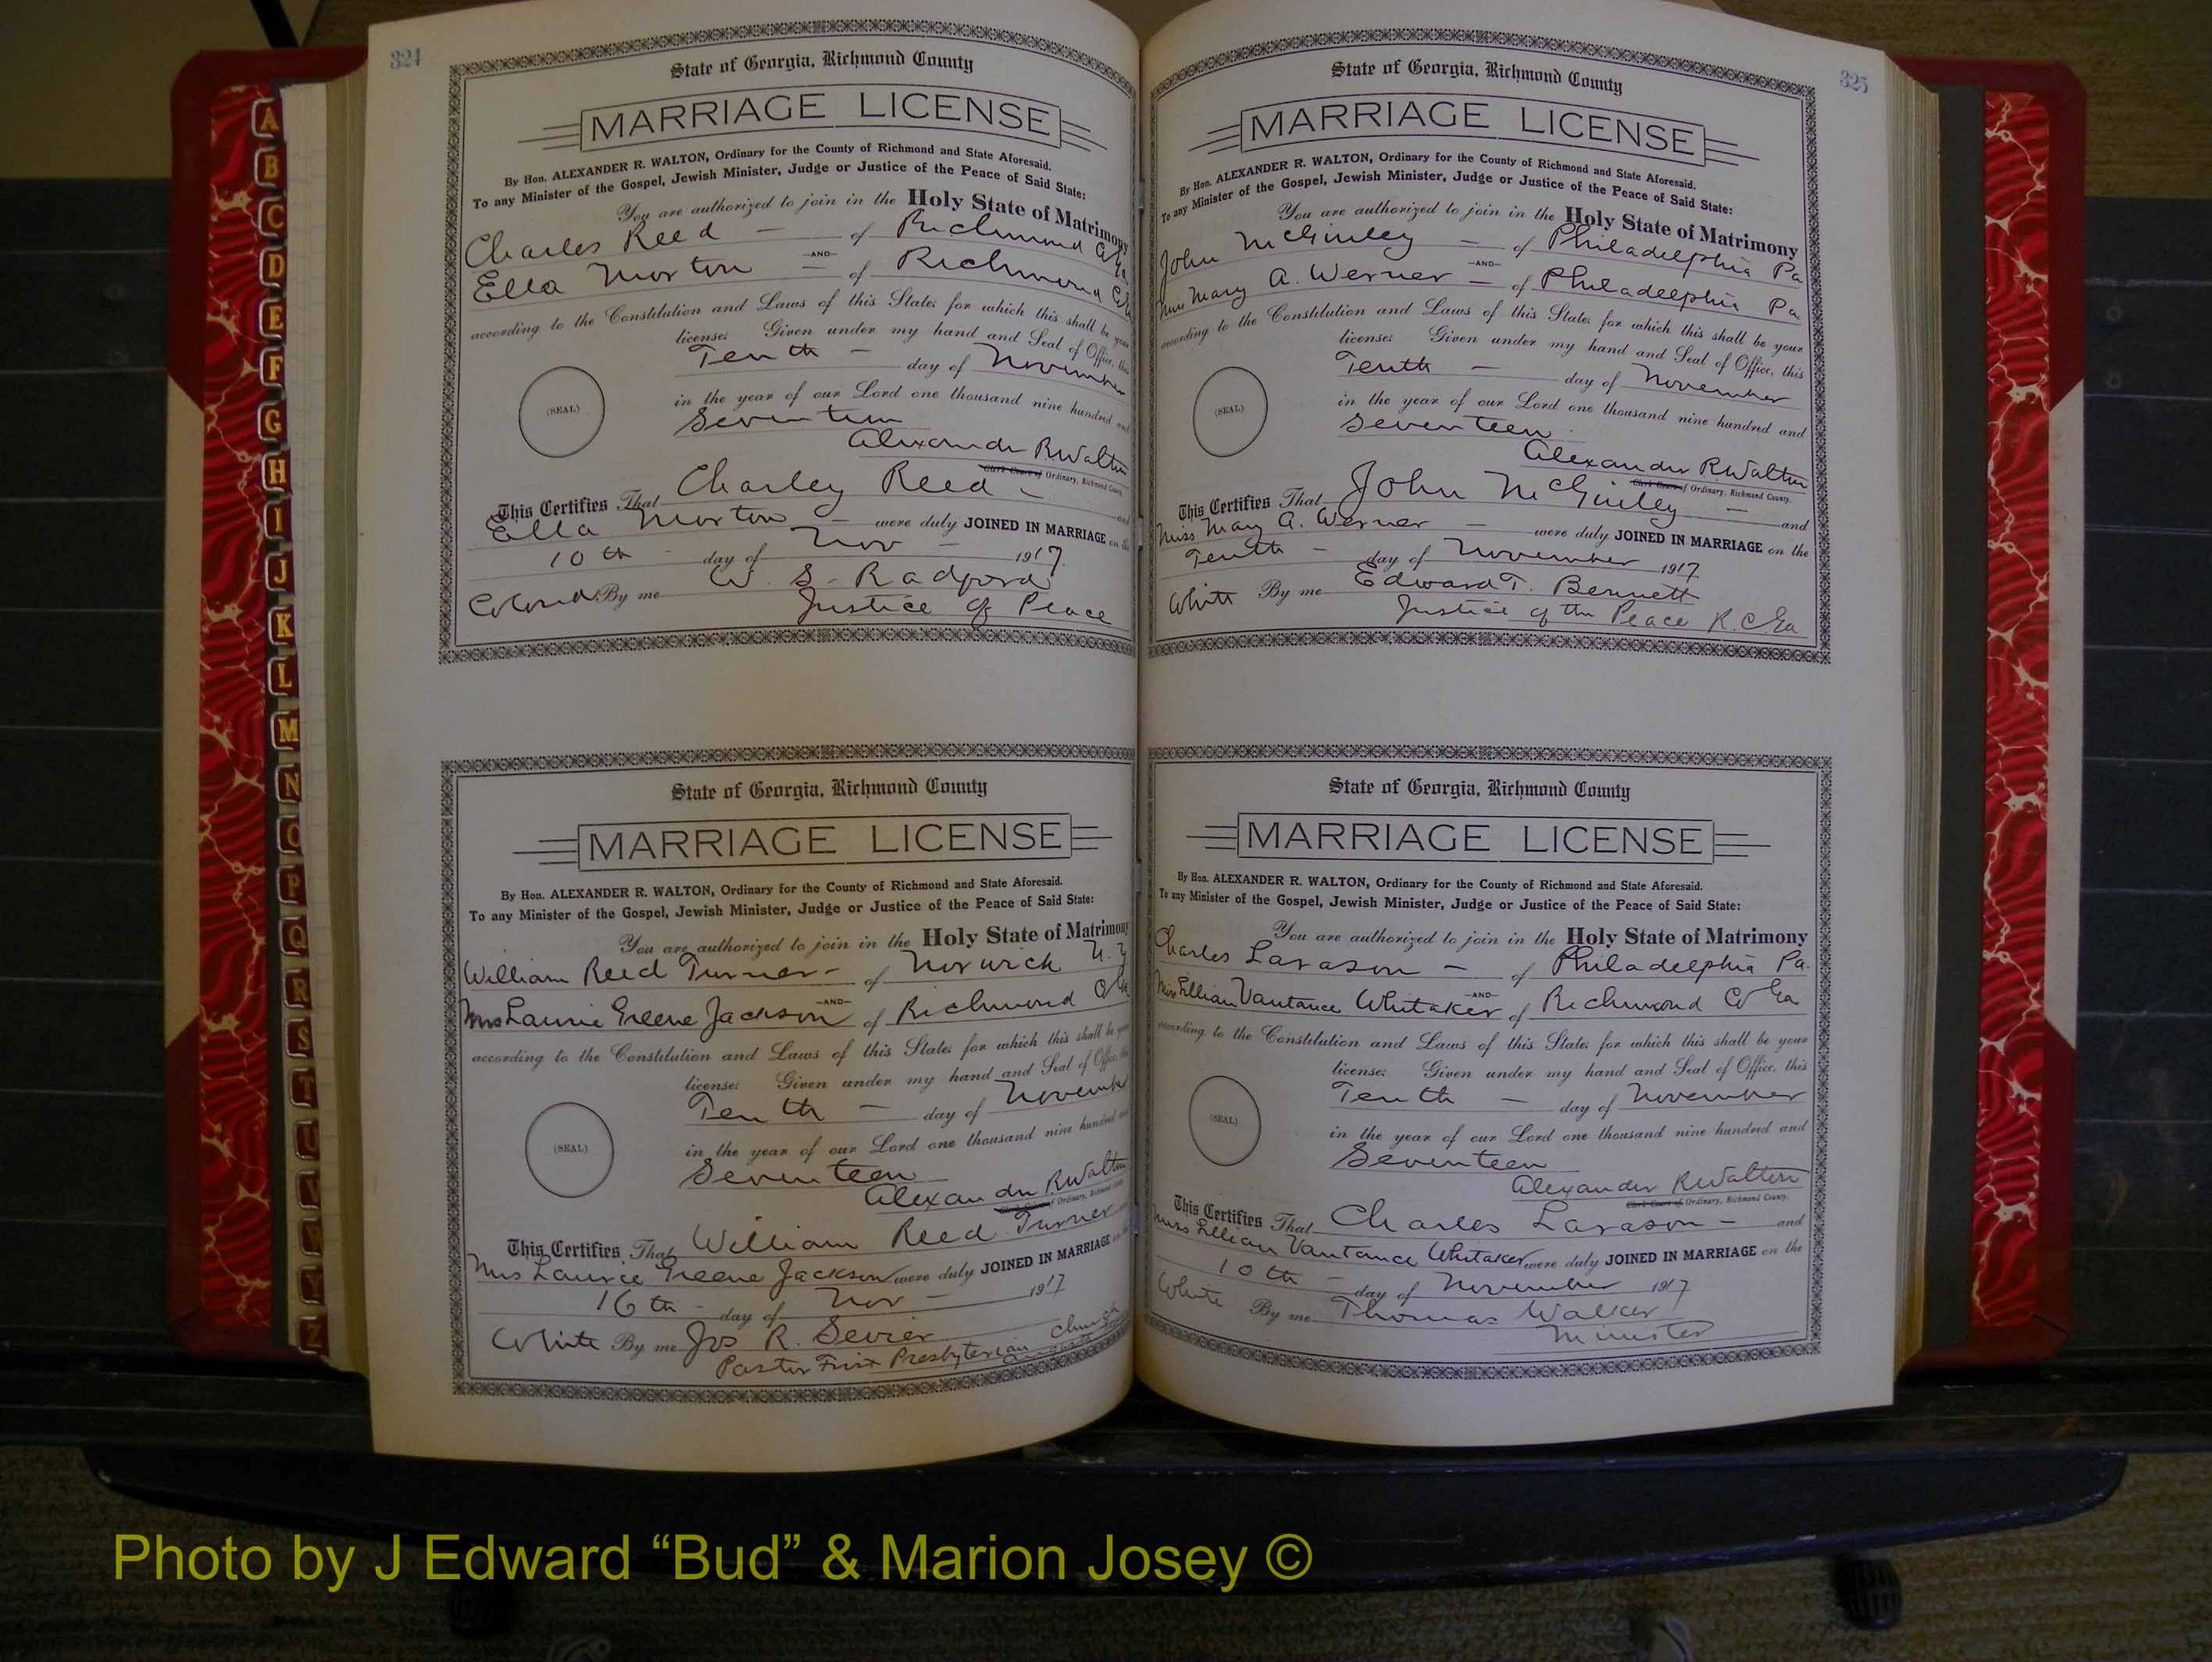 324
State of Georgia, Richmond County
MARRIAGE LICENSE
By Hon. ALEXANDER R. WALTON, Ordinary for the County of Richmond and State Aforesaid.
To any Minister of the Gospel, Jewish Minister, Judge or Justice of the Peace of Said State:
You are authorized to join in the Holy State of Matrimony
Charles Reed - of Richmond Co Ga
-AND-
Ella Morton - of Richmond Co
according to the Constitution and Laws of this State; for which this shall be your
license: Given under my hand and Seal of Office, this
Tenth - day of November
(SEAL)
in the year of our Lord one thousand nine hundred and
Seventeen
Alexander R Walton
Clerk Court of Ordinary, Richmond County.
This Certifies That Charley Reed - and
Ella Morton - were duly JOINED IN MARRIAGE on the
10th - day of Nov - 1917.
Colored By me W. S. Radford
Justice of Peace
State of Georgia, Richmond County
MARRIAGE LICENSE
By Hon. ALEXANDER R. WALTON, Ordinary for the County of Richmond and State Aforesaid.
To any Minister of the Gospel, Jewish Minister, Judge or Justice of the Peace of Said State:
You are authorized to join in the Holy State of Matrimony
William Reed Turner - of Norwich N.Y
-AND-
Mrs Laurie Greene Jackson of Richmond Co Ga
according to the Constitution and Laws of this State; for which this shall be your
license: Given under my hand and Seal of Office, this
Tenth - day of November
(SEAL)
in the year of our Lord one thousand nine hundred and
Seventeen
Alexander R Walton
of Ordinary, Richmond County.
This Certifies That William Reed Turner
Mrs Laurie Greene Jackson were duly JOINED IN MARRIAGE on the
16th - day of Nov - 1917
White By me Jos R. Sevier
Pastor First Presbyterian Church
325
State of Georgia, Richmond County
MARRIAGE LICENSE
By Hon. ALEXANDER R. WALTON, Ordinary for the County of Richmond and State Aforesaid.
To any Minister of the Gospel, Jewish Minister, Judge or Justice of the Peace of Said State:
You are authorized to join in the Holy State of Matrimony
John McGinley - of Philadelphia Pa
-AND-
Mary A. Werner - of Philadelphia Pa
according to the Constitution and Laws of this State; for which this shall be your
license: Given under my hand and Seal of Office, this
Tenth - day of November
(SEAL)
in the year of our Lord one thousand nine hundred and
Seventeen
Alexander R. Walton
Clerk Court of Ordinary, Richmond County.
This Certifies That John McGinley - and
Miss Mary A. Werner - were duly JOINED IN MARRIAGE on the
Tenth - day of November 1917.
White By me Edward T. Bennett
Justice of the Peace R.C Ga
State of Georgia, Richmond County
MARRIAGE LICENSE
By Hon. ALEXANDER R. WALTON, Ordinary for the County of Richmond and State Aforesaid.
To any Minister of the Gospel, Jewish Minister, Judge or Justice of the Peace of Said State:
You are authorized to join in the Holy State of Matrimony
Charles Larason - of Philadelphia Pa.
-AND-
Miss Lillian Vantance Whitaker of Richmond Co Ga
according to the Constitution and Laws of this State; for which this shall be your
license: Given under my hand and Seal of Office, this
Tenth - day of November
(SEAL)
in the year of our Lord one thousand nine hundred and
Seventeen
Alexander R Walton
Clerk Court of Ordinary, Richmond County.
This Certifies That Charles Larason - and
Miss Lillian Vantance Whitaker were duly JOINED IN MARRIAGE on the
10th - day of November 1917
White By me Thomas Walker
Minister
A
B
C
D
E
F
G
H
I
J
K
L
M
N
O
P
Q
R
S
T
U
V
W
Y
Z
Photo by J Edward “Bud” & Marion Josey ©